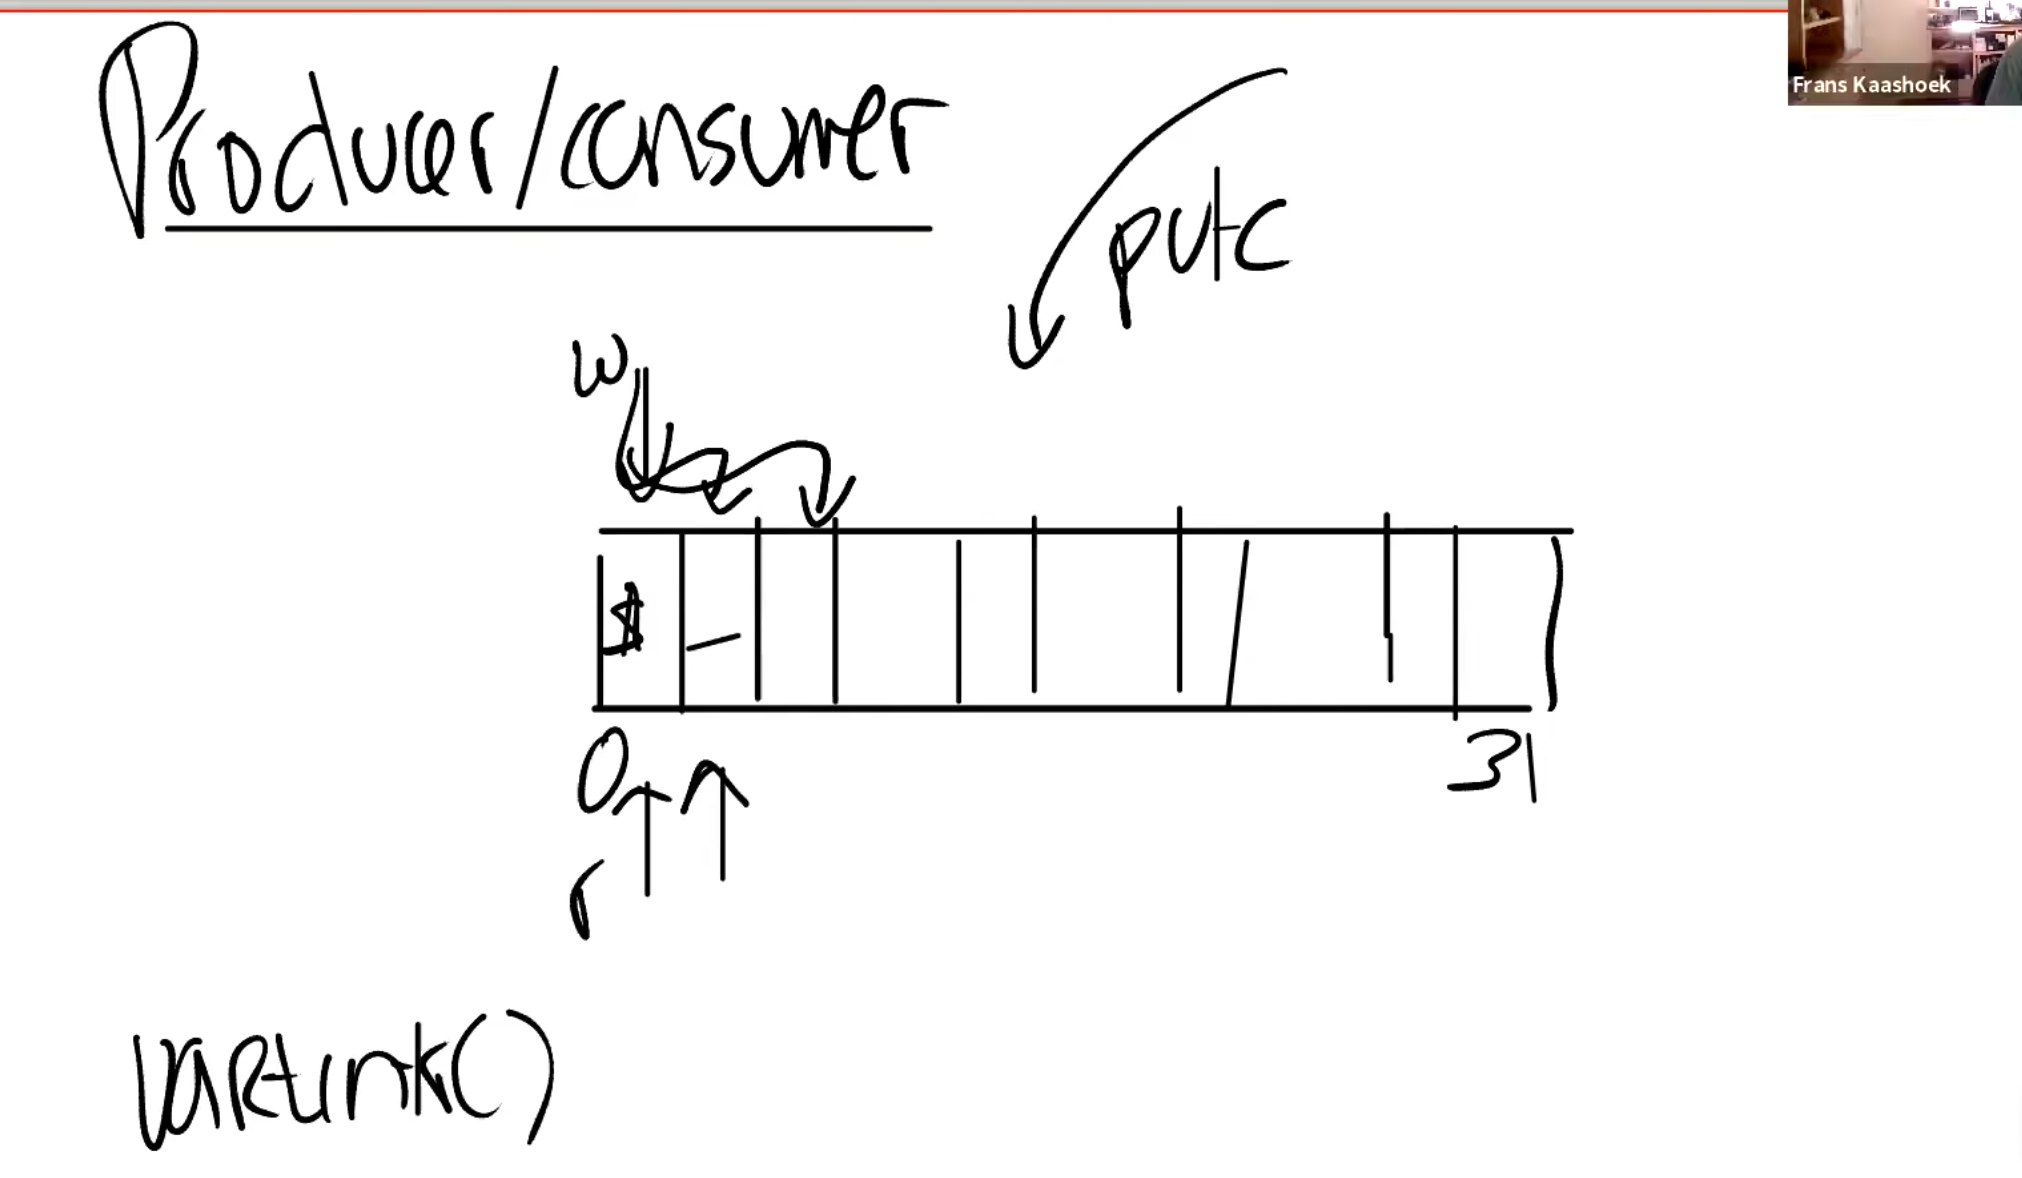 Frans Kaashoek
Producer/consumer
putc
w
$
0
31
r